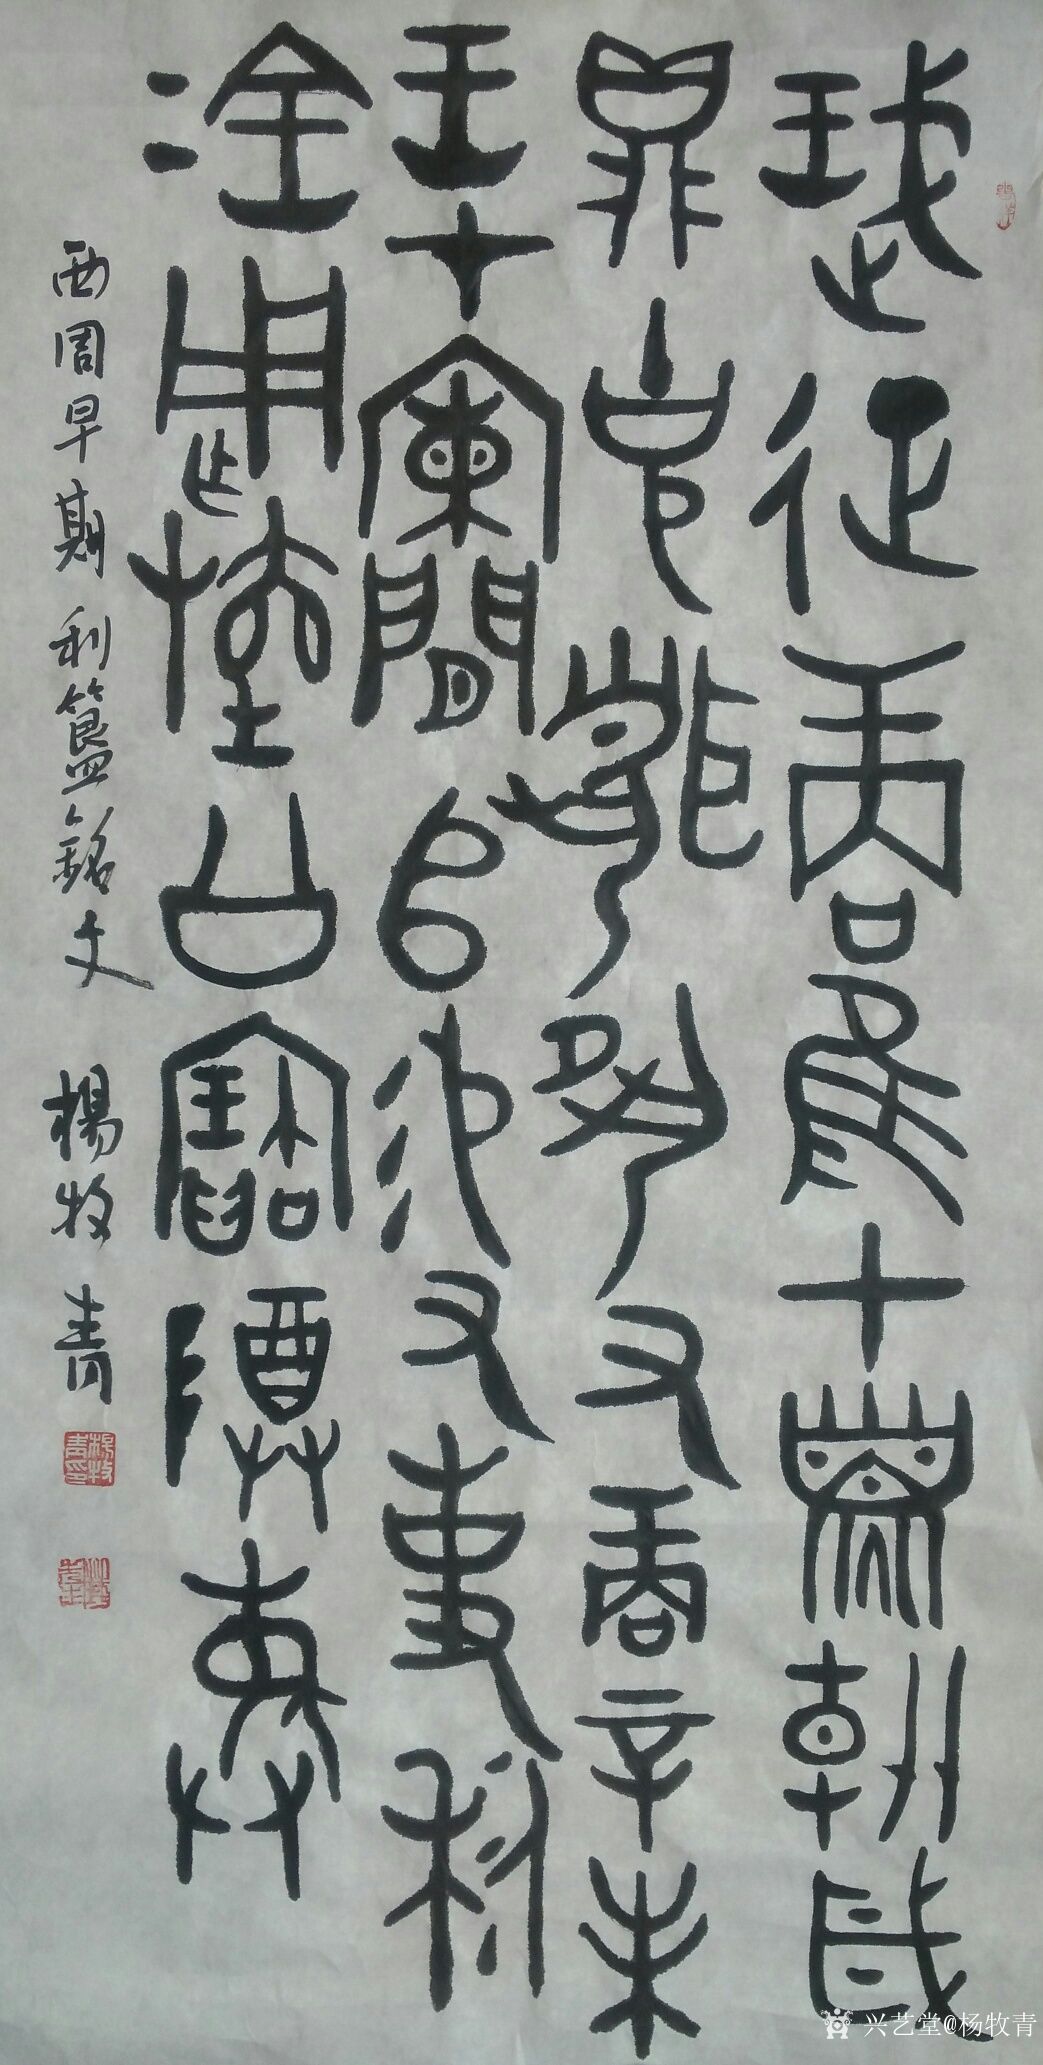 珷征商隹甲子朝歲
鼎克聞夙又商辛未
王才闌𠂤易又事利
金用乍𣄰公寶尊彝
西周早期利簋銘文 楊牧青
楊牧青印
兴艺堂@杨牧青